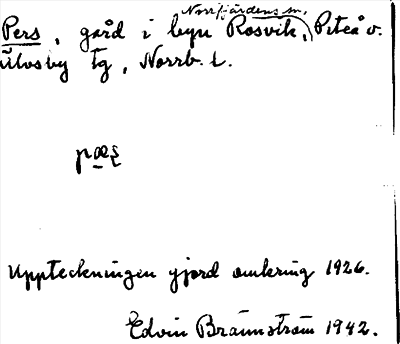 Norrfjärdens sn,
Pers, gård i byn Rosvik, Piteå o.
Älvsby tg, Norrb. l.
pæs
Uppteckningen gjord omkring 1926.
Edvin Brännström 1942.